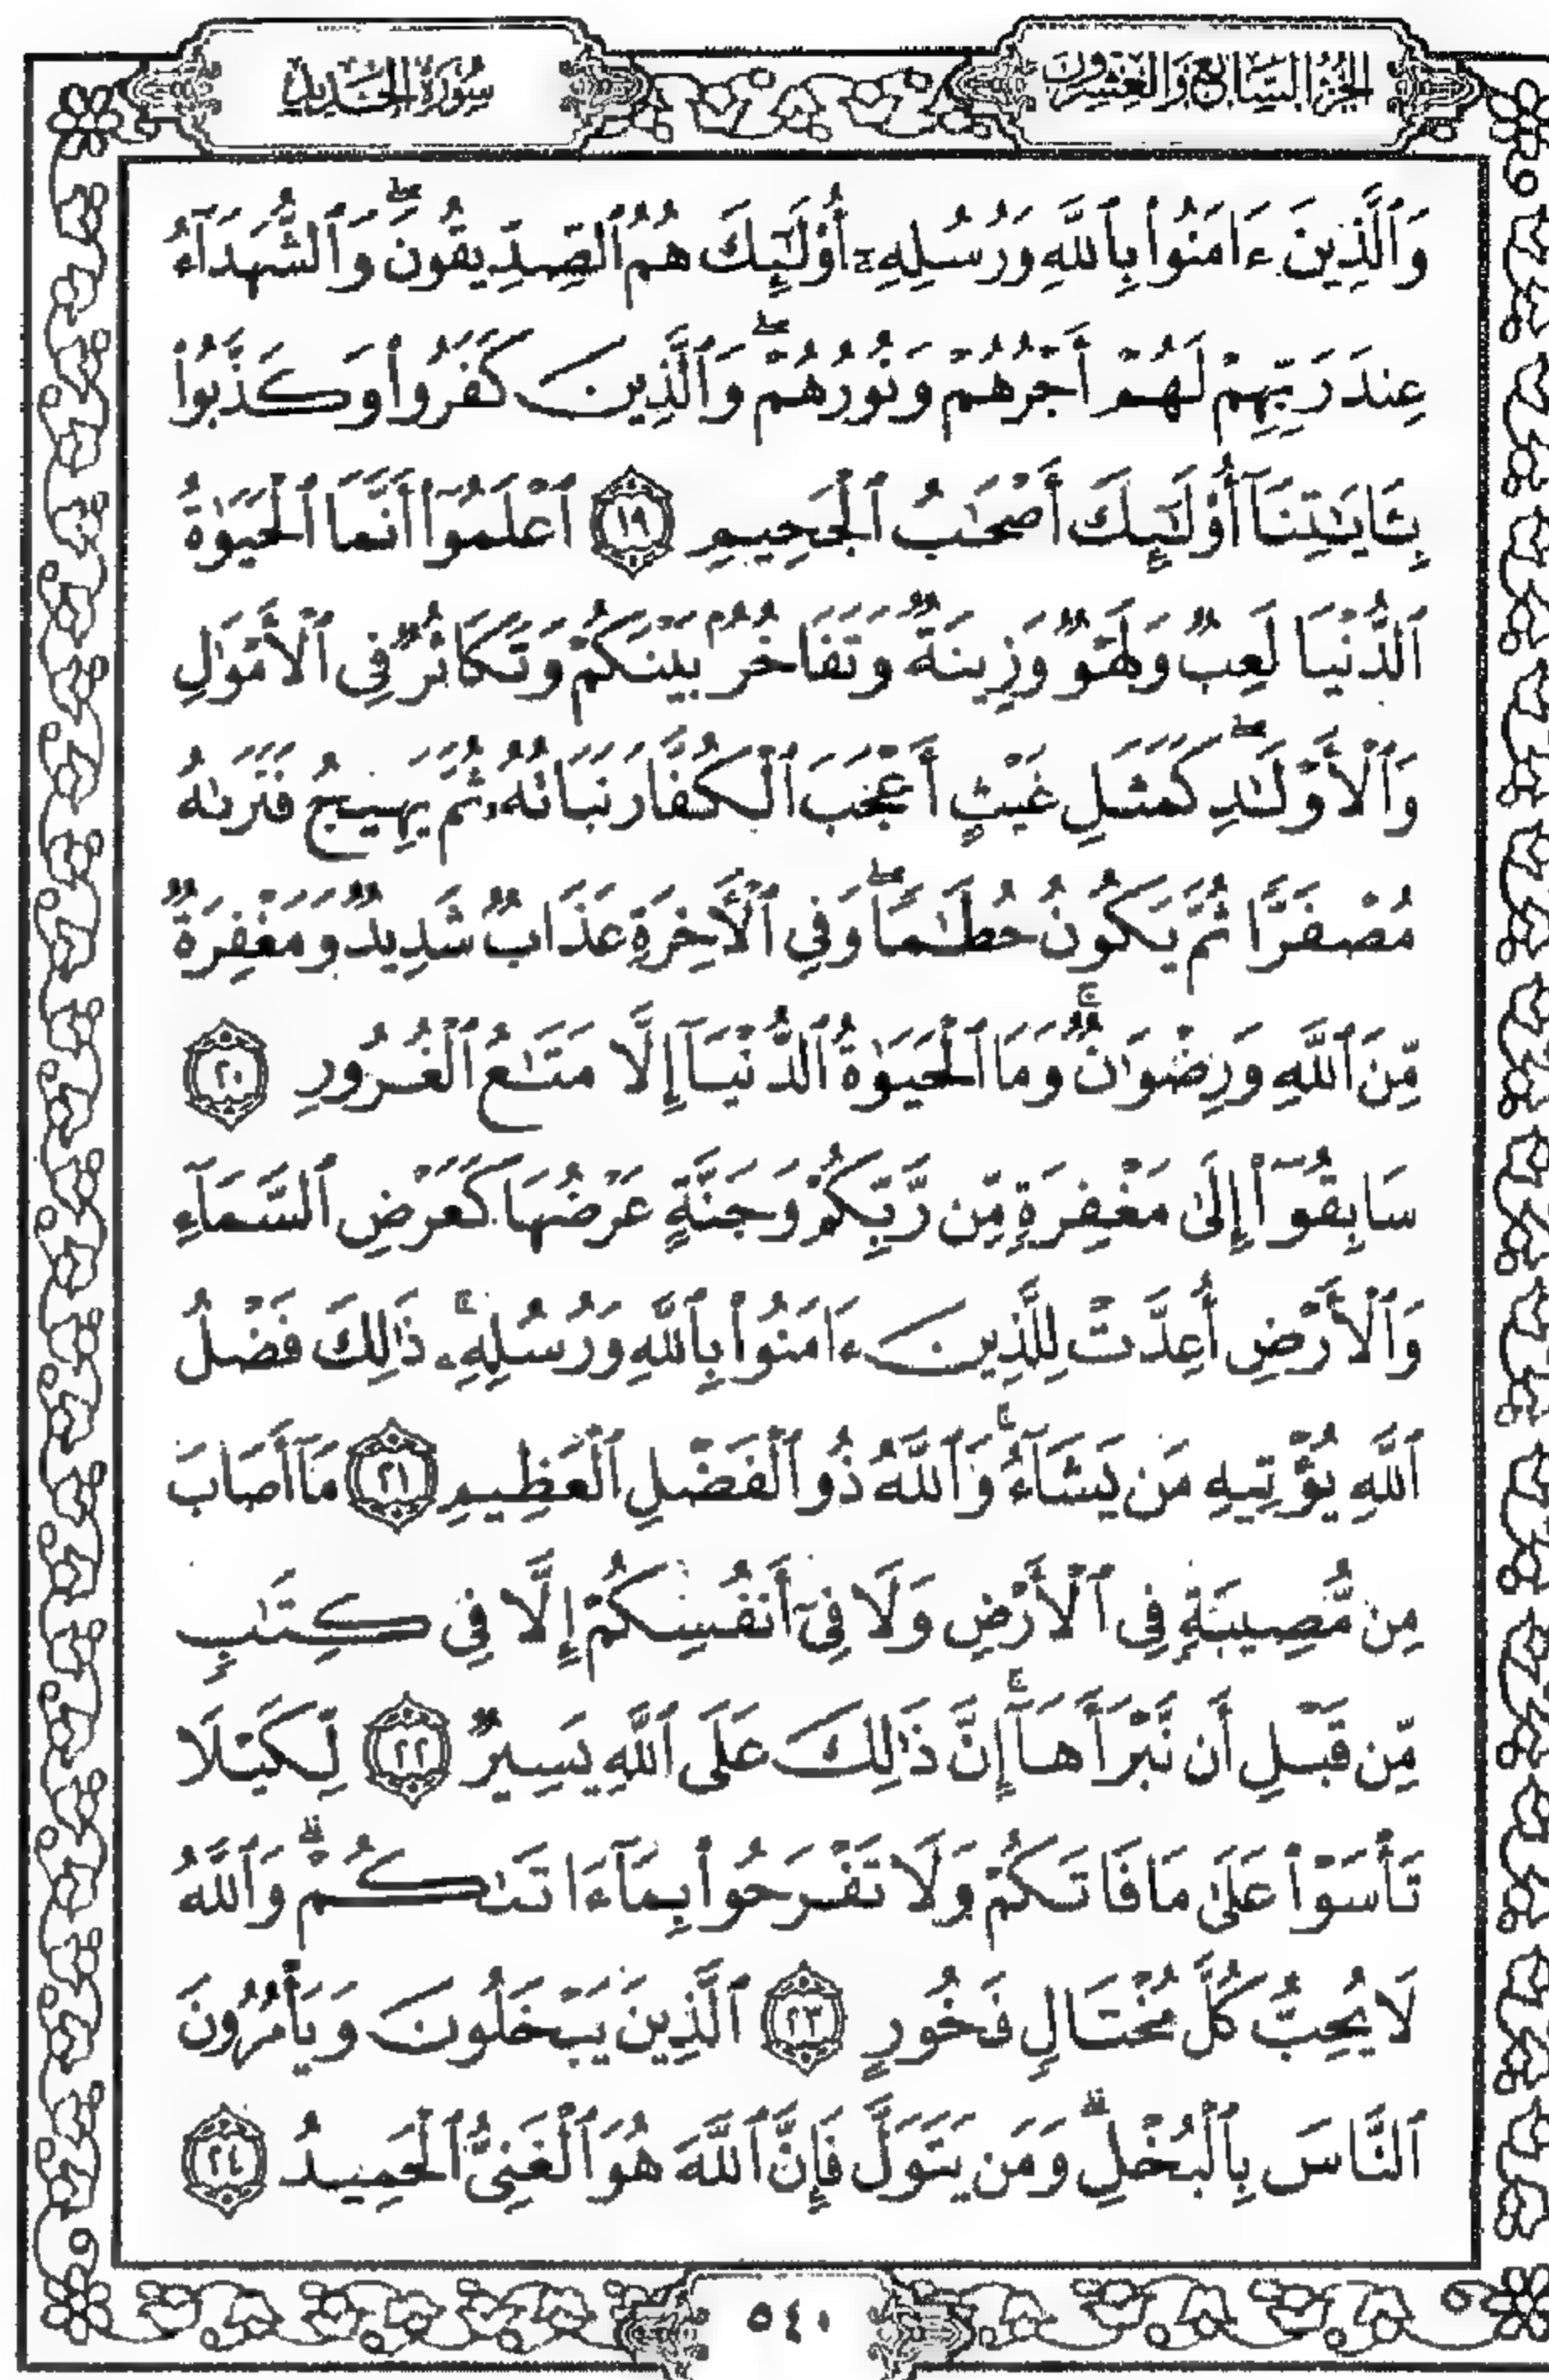 الجزء السابع والعشرون
سورة الحديد
وَٱلَّذِينَ ءَامَنُوا۟ بِٱللَّهِ وَرُسُلِهِۦٓ أُو۟لَٰٓئِكَ هُمُ ٱلصِّدِّيقُونَ ۖ وَٱلشُّهَدَآءُ
عِندَ رَبِّهِمْ لَهُمْ أَجْرُهُمْ وَنُورُهُمْ ۖ وَٱلَّذِينَ كَفَرُوا۟ وَكَذَّبُوا۟
بِـَٔايَٰتِنَآ أُو۟لَٰٓئِكَ أَصْحَٰبُ ٱلْجَحِيمِ ١٩ ٱعْلَمُوٓا۟ أَنَّمَا ٱلْحَيَوٰةُ
ٱلدُّنْيَا لَعِبٌ وَلَهْوٌ وَزِينَةٌ وَتَفَاخُرٌۢ بَيْنَكُمْ وَتَكَاثُرٌ فِى ٱلْأَمْوَٰلِ
وَٱلْأَوْلَٰدِ ۖ كَمَثَلِ غَيْثٍ أَعْجَبَ ٱلْكُفَّارَ نَبَاتُهُۥ ثُمَّ يَهِيجُ فَتَرَىٰهُ
مُصْفَرًّا ثُمَّ يَكُونُ حُطَٰمًا ۖ وَفِى ٱلْـَٔاخِرَةِ عَذَابٌ شَدِيدٌ وَمَغْفِرَةٌ
مِّنَ ٱللَّهِ وَرِضْوَٰنٌ ۚ وَمَا ٱلْحَيَوٰةُ ٱلدُّنْيَآ إِلَّا مَتَٰعُ ٱلْغُرُورِ ٢٠
سَابِقُوٓا۟ إِلَىٰ مَغْفِرَةٍ مِّن رَّبِّكُمْ وَجَنَّةٍ عَرْضُهَا كَعَرْضِ ٱلسَّمَآءِ
وَٱلْأَرْضِ أُعِدَّتْ لِلَّذِينَ ءَامَنُوا۟ بِٱللَّهِ وَرُسُلِهِۦ ۚ ذَٰلِكَ فَضْلُ
ٱللَّهِ يُؤْتِيهِ مَن يَشَآءُ ۚ وَٱللَّهُ ذُو ٱلْفَضْلِ ٱلْعَظِيمِ ٢١ مَآ أَصَابَ
مِن مُّصِيبَةٍ فِى ٱلْأَرْضِ وَلَا فِىٓ أَنفُسِكُمْ إِلَّا فِى كِتَٰبٍ
مِّن قَبْلِ أَن نَّبْرَأَهَآ ۚ إِنَّ ذَٰلِكَ عَلَى ٱللَّهِ يَسِيرٌ ٢٢ لِّكَيْلَا
تَأْسَوْا۟ عَلَىٰ مَا فَاتَكُمْ وَلَا تَفْرَحُوا۟ بِمَآ ءَاتَىٰكُمْ ۗ وَٱللَّهُ
لَا يُحِبُّ كُلَّ مُخْتَالٍ فَخُورٍ ٢٣ ٱلَّذِينَ يَبْخَلُونَ وَيَأْمُرُونَ
ٱلنَّاسَ بِٱلْبُخْلِ ۗ وَمَن يَتَوَلَّ فَإِنَّ ٱللَّهَ هُوَ ٱلْغَنِىُّ ٱلْحَمِيدُ ٢٤
٥٤٠